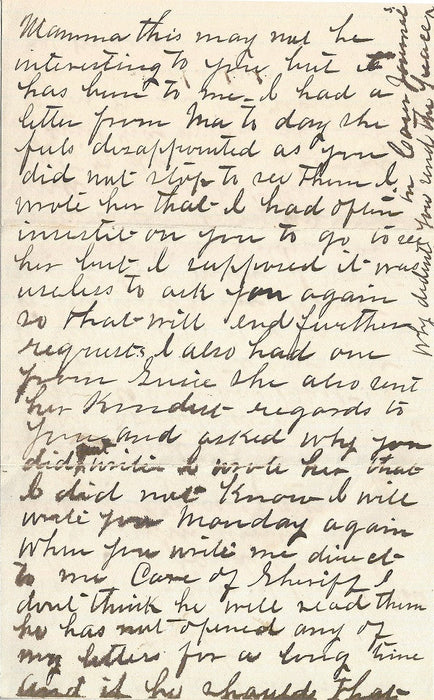 Mamma this may not be
interesting to you but it
has been to me I had a
letter from Ma to day she
feels disappointed as you
did not stop to see them I
wrote her that I had often
insisted on you to go to see
her but I supposed it was
useless to ask you again
so that will end further
requests I also had one
from Susie she also sent
her Kindest regards to
you and asked why you
did not write I wrote her that
I did not Know I will
write you Monday again
When you write me direct
to me Care of Sheriff I
dont think he will read them
he has not opened any of
my letters for a long time
and if he should that
Why didnt you send the
in Care